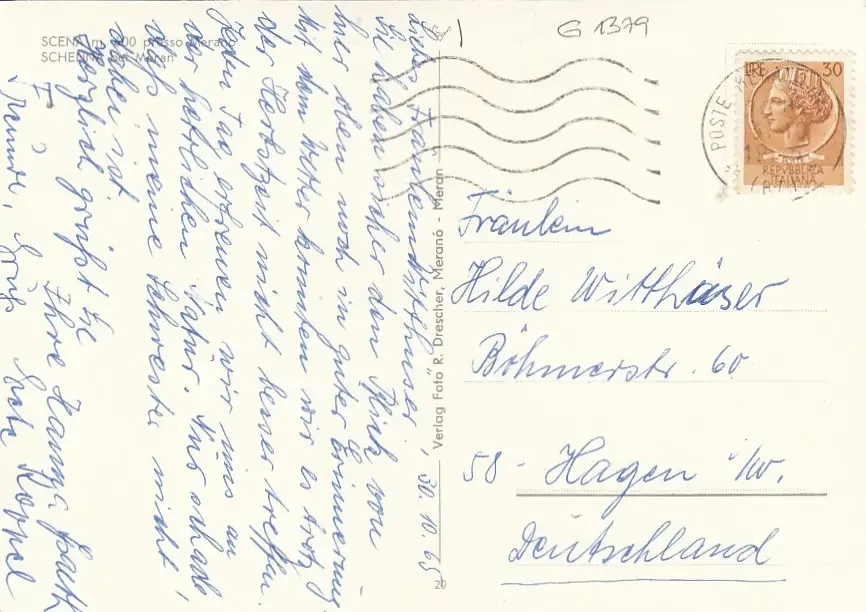 G 1379
SCENA m. 600 presso Merano
SCHENNA bei Meran
30.10.69
Liebes Fräulein Witthüser,
Sie haben sicher den Blick von
hier oben noch in guter Erinnerung.
Mit dem Wetter konnten wir es trotz
der Herbstzeit nicht besser treffen.
Jeden Tag erfreuen wir uns an
der herrlichen Natur. Nur schade,
daß meine Schwester nicht
dabei ist
Herzlich grüßt Sie
Ihre
Verlag Foto R. Drescher, Merano - Meran
20
POSTE
LIRE 30
REPVBBLICA
ITALIANA
Fräulein
Hilde Witthüser
Böhmerstr. 60
58 - Hagen i/W.
Deutschland